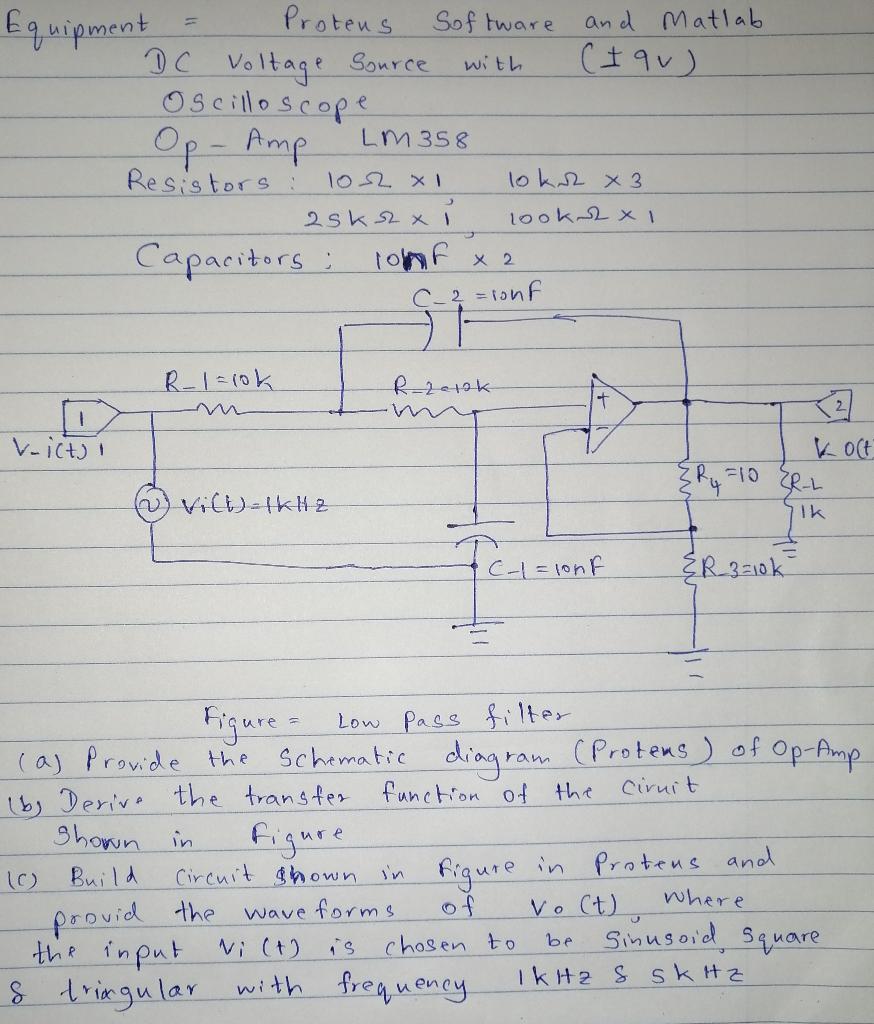 Equipment = Proteus Software and Matlab
DC Voltage Source with (±9v)
Oscilloscope
Op-Amp LM358
Resistors: 10Ω x1, 10kΩ x3
25kΩ x1, 100kΩ x1
Capacitors; 10nF x2
C_2 =10nF
R_1=10K
R_2=10k
+
1
2
-
V-i(t)1
R4=10
R-L
1k
Vi(t)=1KHz
C-1=10nF
R_3=10k
Figure = Low Pass filter
(a) Provide the Schematic diagram (Proteus) of Op-Amp
(b) Derive the transfer function of the Ciruit
Shown in Figure
(c) Build Circuit shown in Figure in Proteus and
provid the waveforms of Vo(t), where
the input Vi(t) is chosen to be Sinusoid, Square
& triangular with frequency 1kHz & 5kHz